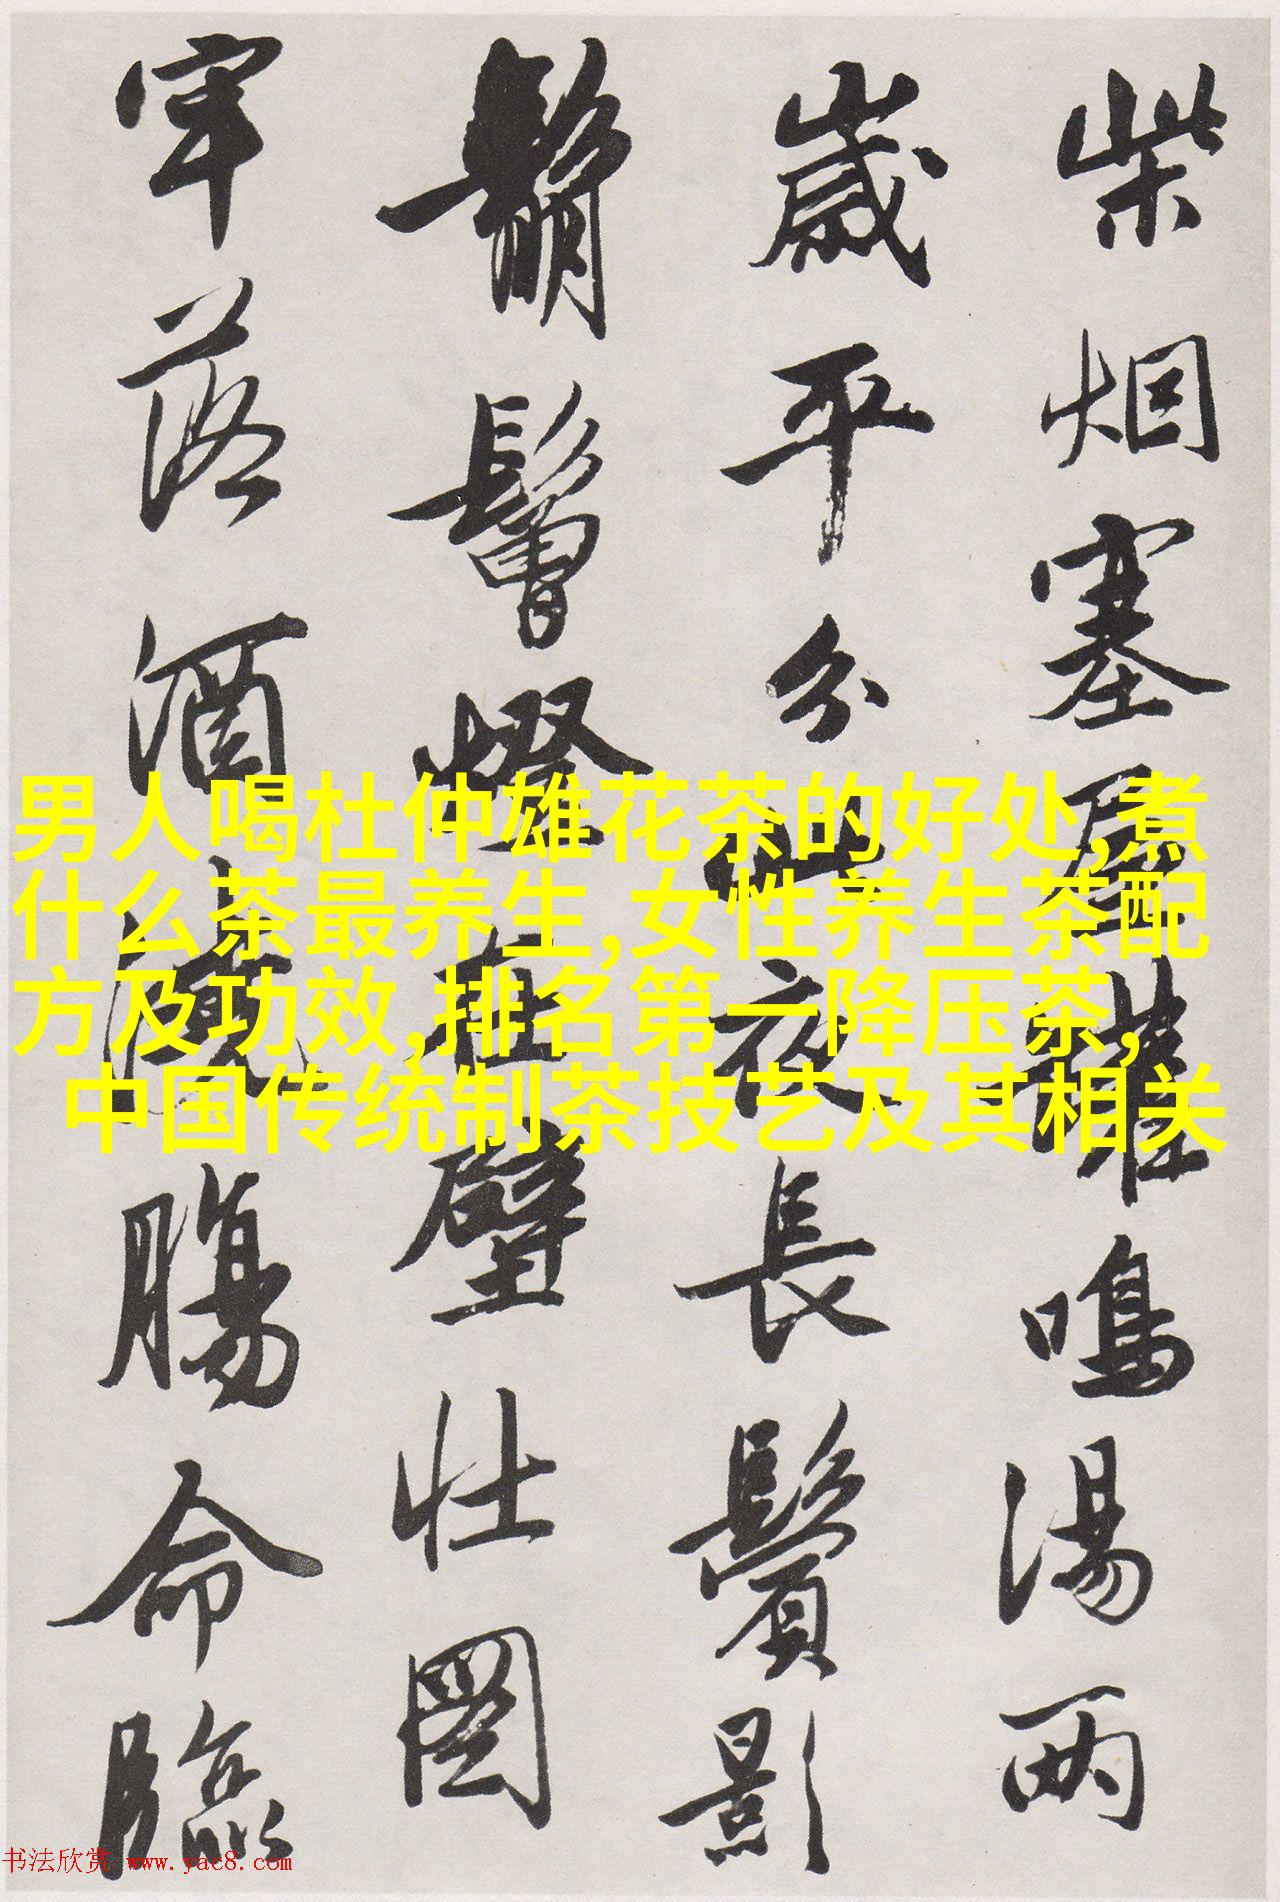 柴烟塞屋罐鳴湯两
歲平分此夜長鬢影
鬅鬙燈在壁壮圖
牢落酒澆腸命臨
男人喝杜仲雄花茶的好处,煮
什么茶最养生,女性养生茶配
方及功效,排名第一降压茶,
中国传统制茶技艺及其相关
书法欣赏 www.yac8.com